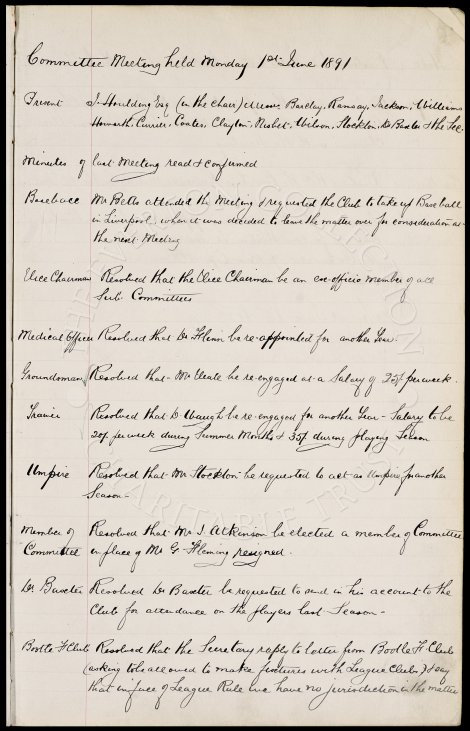 Committee Meeting held Monday 1st June 1891
Present J. Houlding Esq (in the chair) Messrs Barclay, Ramsay, Jackson, Williams
Howarth, Currier, Coates, Clayton, Nisbet, Wilson, Stockton, Dr Baxter & the Sec.
Minutes of last Meeting read & confirmed
Baseball Mr Betts attended the Meeting & requested the Club to take up Baseball
in Liverpool, when it was decided to leave the matter over for consideration at
the next Meeting
Vice Chairman Resolved that the Vice Chairman be an ex-officio member of all
Sub Committees
Medical Officer Resolved that Dr Flinn be re-appointed for another Year.
Groundsman Resolved that Mr be re-engaged at a Salary of 25/- per week.
Trainer Resolved that D. Waugh be re-engaged for another Year - Salary to be
20/- per week during Summer Months & 35/- during playing Season
Umpire Resolved that Mr Stockton be requested to act as Umpire for another
Season -
Member of Resolved that Mr J. Atkinson be elected a member of Committee
Committee in place of Mr G. Fleming resigned.
Dr. Baxter Resolved Dr Baxter be requested to send in his account to the
Club for attendance on the players last Season -
Bootle F Club Resolved that the Secretary reply to letter from Bootle F. Club
(asking to be allowed to make fixtures with League Clubs) & say
that in face of League Rule we have no jurisdiction in the matter